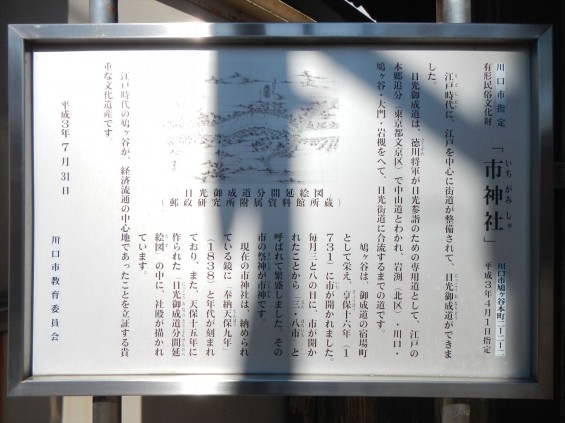 川口市指定
有形民俗文化財
「市神社」
いちがみしゃ
川口市鳩ヶ谷本町二-二-二
平成3年4月1日指定
江戸時代に、江戸を中心に街道が整備されて、日光御成道ができま
した。
日光御成道は、徳川将軍が日光参詣のための専用道として、江戸の
本郷追分（東京都文京区）で中山道とわかれ、岩渕（北区）・川口・
鳩ヶ谷・大門・岩槻をへて、日光街道に合流するまでの道です。
鳩ヶ谷は、御成道の宿場町
として栄え、享保十六年（1
731）に市が開かれました。
毎月三と八の日に、市が開か
れたことから「三・八市」と
呼ばれて繁盛しました。その
市の祭神が市神です。
現在の市神社は、納められ
ている鏡に「奉納天保九年
（1838）と年代が刻まれ
ており、また、天保十五年に
作られた「日光御成道分間延
絵図」の中に、社殿が描かれ
ています。
日光御成道分間延絵図
（郵政研究所附属資料館所蔵）
江戸時代の鳩ヶ谷が、経済流通の中心地であったことを立証する貴
重な文化遺産です。
平成3年7月31日
川口市教育委員会